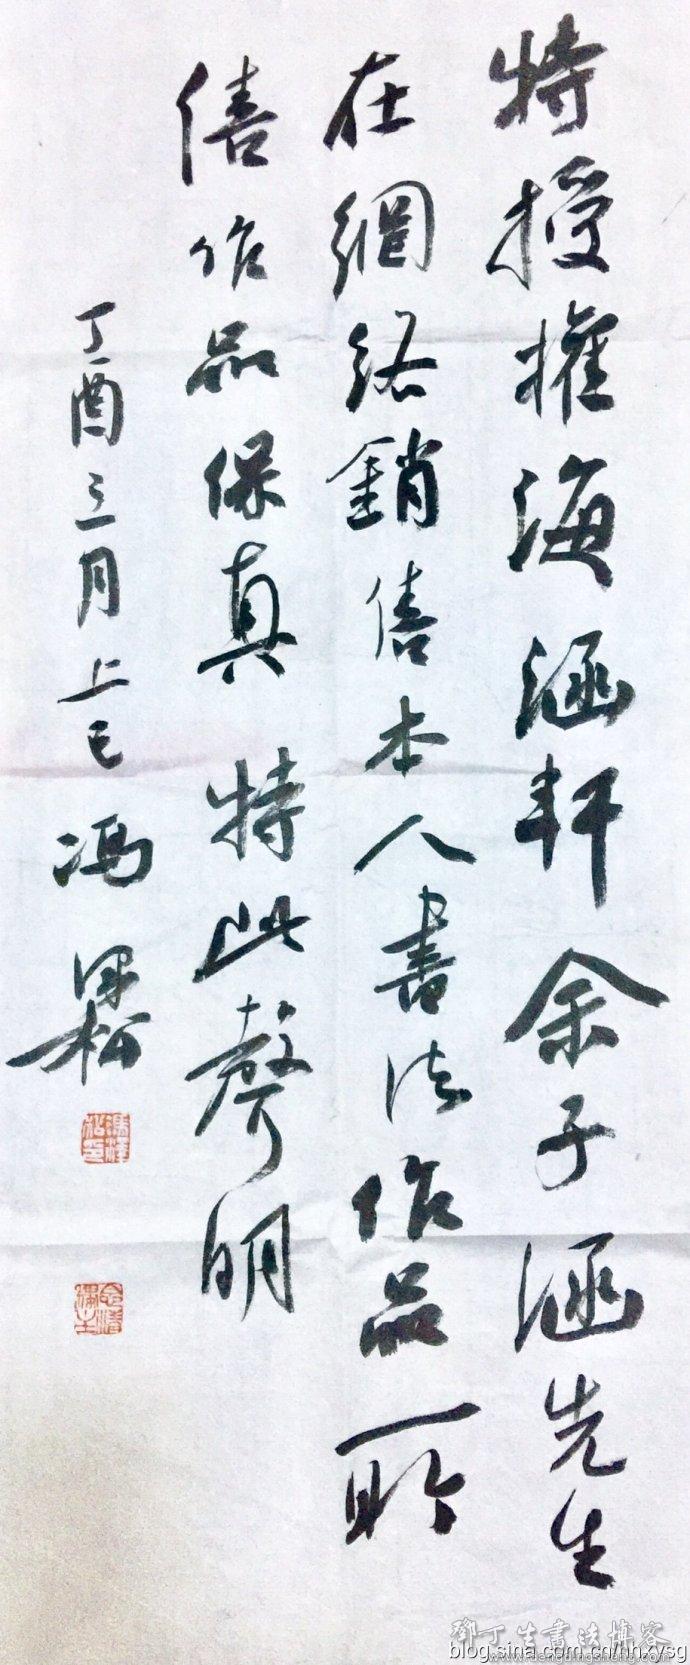 特授權海涵軒余子涵先生
在網絡銷售本人書法作品所
售作品保真 特此聲明
丁酉三月上巳 馮
鄧丁生書法博客
blog.sina.com.cn/nhxysg